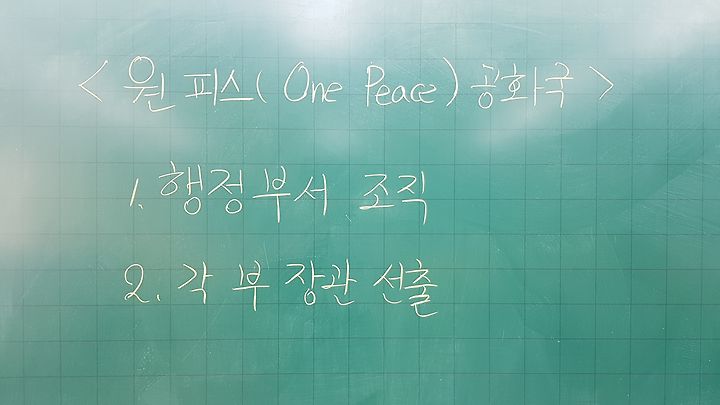 < 원피스( One Peace ) 공화국 >
1. 행정부서 조직
2. 각 부 장관 선출